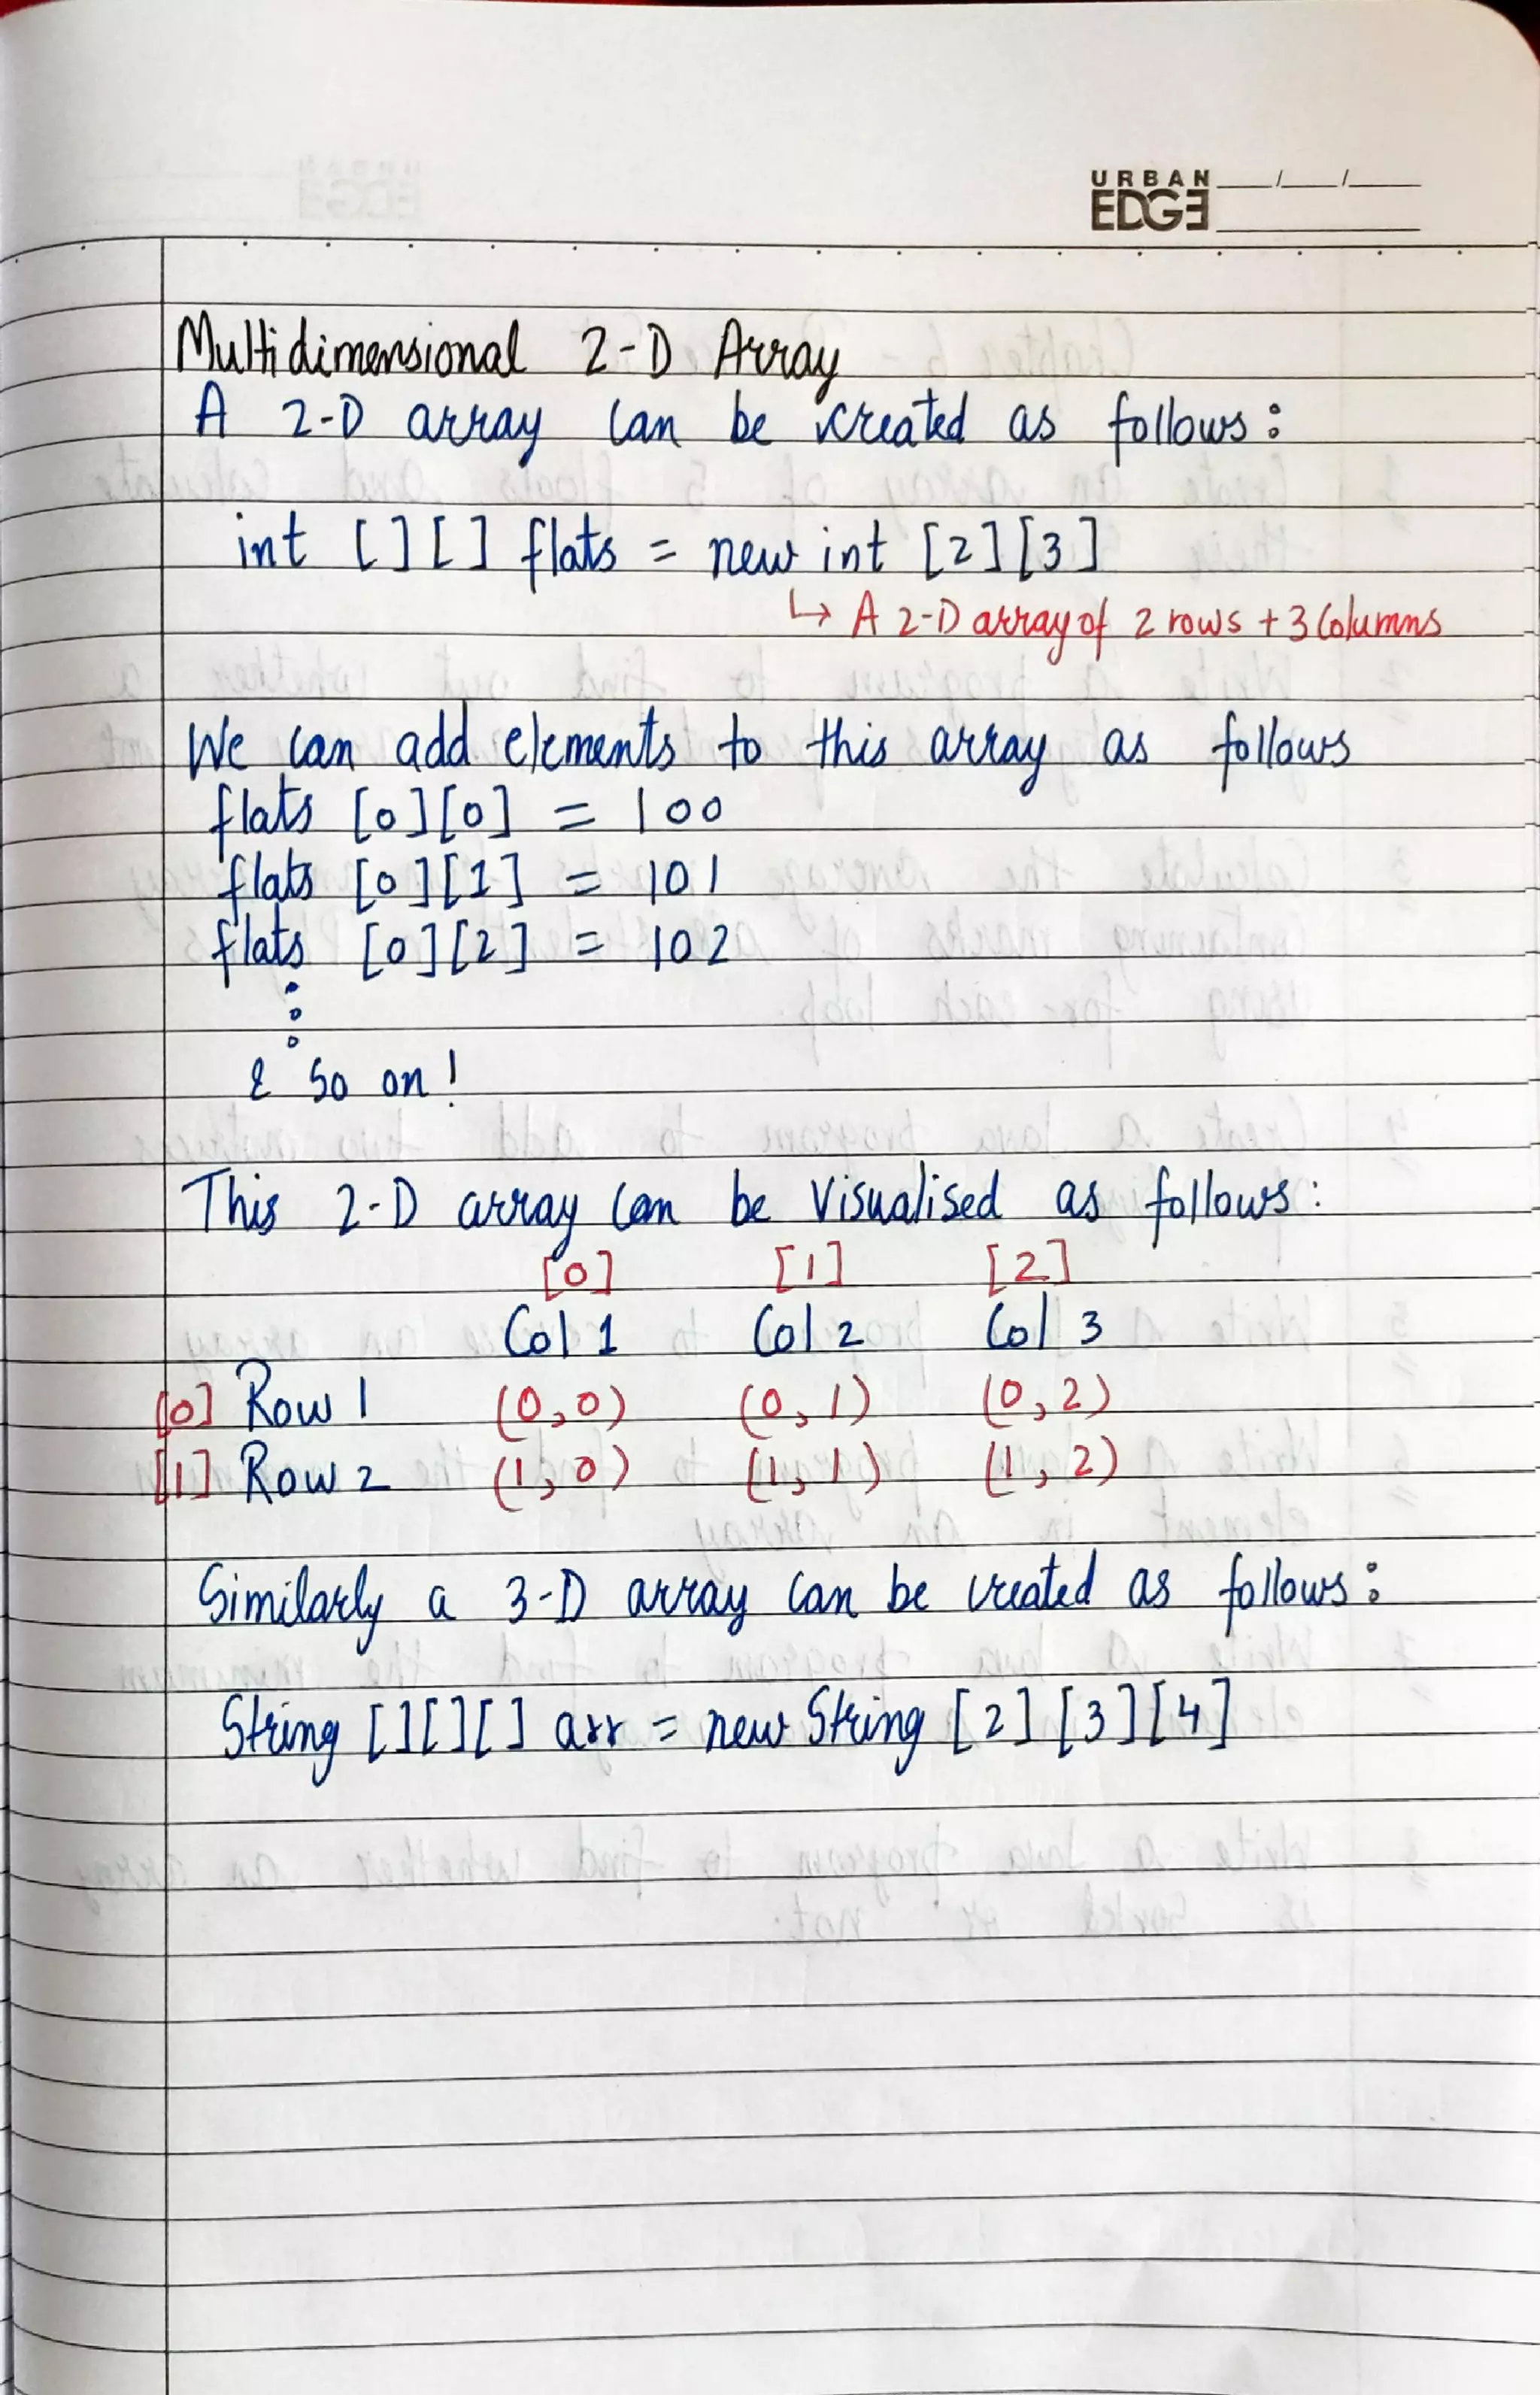 URBAN
EDGE
Multidimensional 2-D Array
A 2-D array can be created as follows:
int [][] flats = new int [2][3]
↳ A 2-D array of 2 rows + 3 Columns
We can add elements to this array as follows
flats [0][0] = 100
flats [0][1] = 101
flats [0][2] = 102
& So on!
This 2-D array can be Visualised as follows:
[0] [1] [2]
Col 1 Col 2 Col 3
[0] Row 1 (0,0) (0,1) (0,2)
[1] Row 2 (1,0) (1,1) (1,2)
Similarly a 3-D array can be created as follows:
String [][][] arr = new String [2][3][4]